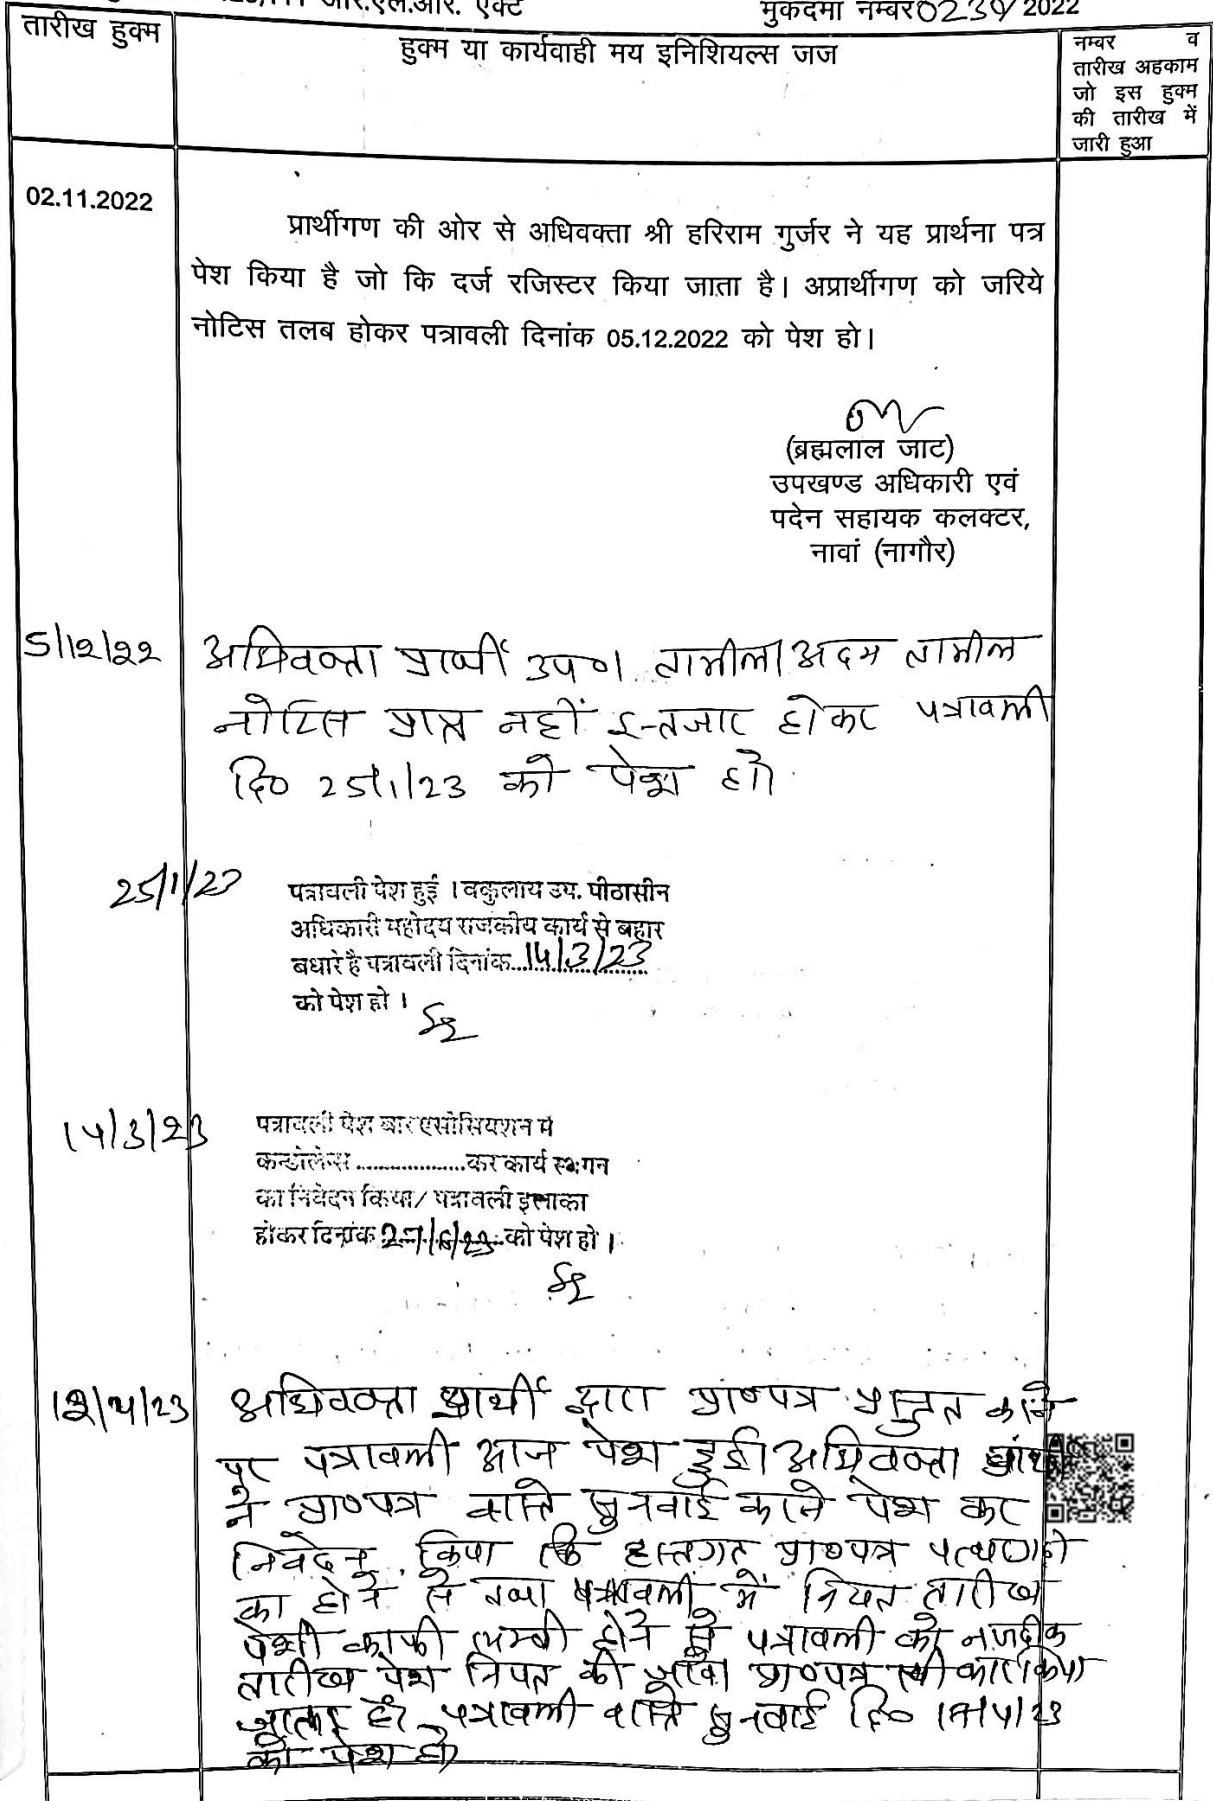 आर.एल.आर. एक्ट मुकदमा नम्बर 0230/2022
तारीख हुक्म
हुक्म या कार्यवाही मय इनिशियल्स जज
नम्बर व
तारीख अहकाम
जो इस हुक्म
की तारीख में
जारी हुआ
02.11.2022
प्रार्थीगण की ओर से अधिवक्ता श्री हरिराम गुर्जर ने यह प्रार्थना पत्र
पेश किया है जो कि दर्ज रजिस्टर किया जाता है। अप्रार्थीगण को जरिये
नोटिस तलब होकर पत्रावली दिनांक 05.12.2022 को पेश हो।
(ब्रह्मलाल जाट)
उपखण्ड अधिकारी एवं
पदेन सहायक कलक्टर,
नावां (नागौर)
5/12/22 अधिवक्ता प्रार्थी उप०। तामील/अदम तामील
नोटिस प्राप्त नहीं इन्तजार होकर पत्रावली
दि० 25/1/23 को पेश हो
25/1/23
पत्रावली पेश हुई । वकुलाय उप. पीठासीन
अधिकारी महोदय राजकीय कार्य से बहार
बधारे है पत्रावली दिनांक 14/3/23
को पेश हो ।
14/3/23
पत्रावली पेश बार एसोसियशन में
कन्डोलेन्स ..................कर कार्य स्थगन
का निवेदन किया/ पत्रावली इलाका
होकर दिनांक 27/6/23 को पेश हो ।
12/4/23 अधिवक्ता प्रार्थी द्वारा प्रा०पत्र प्रस्तुत करने
पर पत्रावली आज पेश हुई। अधिवक्ता प्रार्थी
ने प्रा०पत्र वास्ते सुनवाई करने पेश कर
निवेदन किया कि हस्तगत प्रा०पत्र पत्थगढी
का होने से तथा पत्रावली में नियत तारीख
पेशी काफी लम्बी होने से पत्रावली को नजदीक
तारीख पेश नियत की जावे। प्रा०पत्र स्वीकार किया
जाता है। पत्रावली वास्ते सुनवाई दि० 17/4/23
को पेश हो